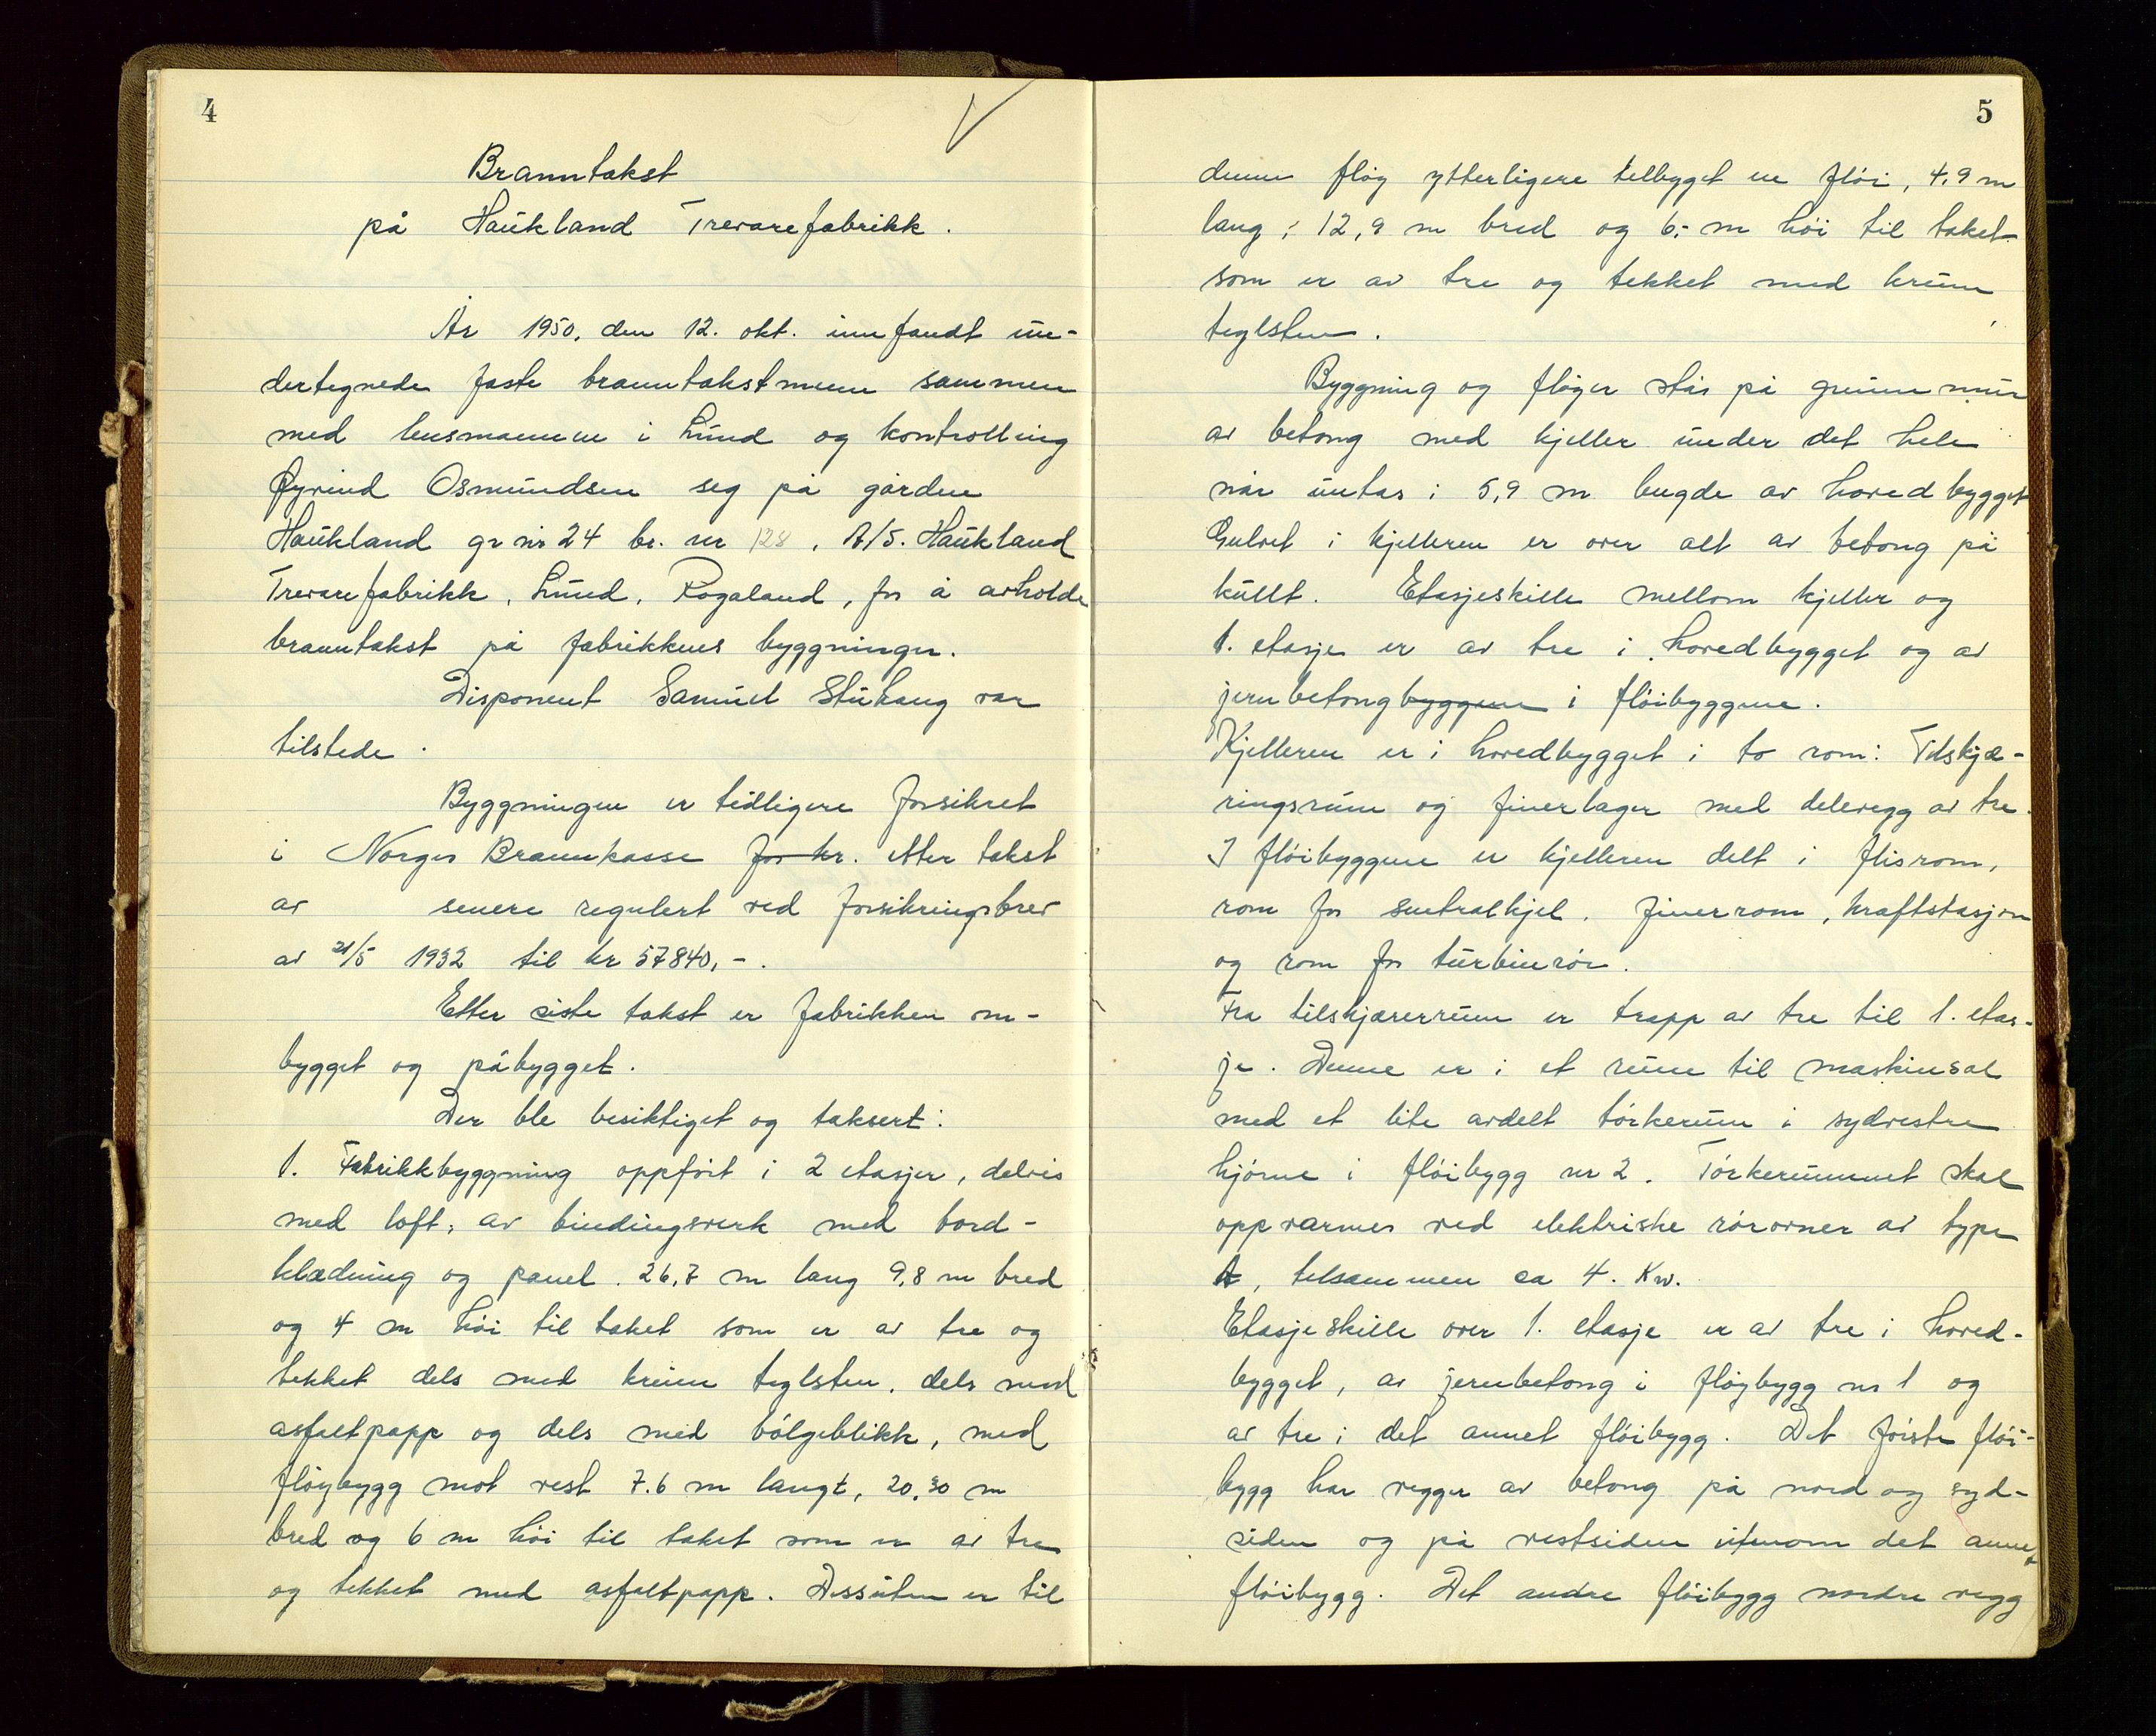 4
Branntakst
på Haukland Trevarefabrikk.
År 1950, den 12. okt. innfandt un-
dertegnede faste branntakstmenn sammen
med lensmannen i Lund og kontrolling
Øyvind Osmundsen seg på gården
Haukland gr nr 24 br. nr 128, A/S. Haukland
Trevarefabrikk, Lund, Rogaland, for å avholde
branntakst på fabrikkens byggninger.
Disponent Samuel Stuhaug var
tilstede.
Byggningen er tidligere forsikret
i Norges Brannkasse for kr. etter takst
av senere regulert ved forsikringsbrev
av 21/5 1932 til kr 57840,-.
Etter siste takst er fabrikken om-
bygget og påbygget.
Der ble besiktiget og taksert:
1. Fabrikkbyggning oppført i 2 etasjer, delvis
med loft, av bindingsverk med bord-
klædning og panel. 26,7 m lang 9,8 m bred
og 4 m høi til taket som er av tre og
tekket dels med krum teglsten, dels med
asfaltpapp og dels med bølgeblikk, med
fløybygg mot vest 7.6 m langt, 20,30 m
bred og 6 m høi til taket som er av tre
og tekket med asfaltpapp. Dessuten er til
5
denne fløy ytterligere tilbygget en fløi, 4,9 m
lang, 12,9 m bred og 6,- m høi til taket
som er av tre og tekket med krum
teglsten.
Byggning og fløyer står på grunnmur
av betong med kjeller under det hele
når untas i 5,9 m lengde av hovedbygget
Gulvet i kjelleren er over alt av betong på
kullt. Etasjeskille mellom kjeller og
1. etasje er av tre i hovedbygget og av
jernbetongbyggene i fløibyggene.
Kjelleren er i hovedbygget i to rom: Tilskjæ-
ringsrum og finerlager med delevegg av tre.
I fløibyggene er kjelleren delt i flisrom,
rom for sentralkjel, finerrom, kraftstasjon
og rom for turbinrør.
Fra tilskjærerrum er trapp av tre til 1. etas-
je. Denne er i et rum til maskinsal
med et lite avdelt tørkerum i sydvestre
hjørne i fløibygg nr 2. Tørkerummet skal
oppvarmes ved elektriske rørovner av type
A, tilsammen ca 4. Kw.
Etasjeskille over 1. etasje er av tre i hoved-
bygget, av jernbetong i fløybygg nr 1 og
av tre i det annet fløibygg. Det første fløi-
bygg har vegger av betong på nord og syd-
siden og på vestsiden utenom det annet
fløibygg. Det andre fløibygg nordre vegg